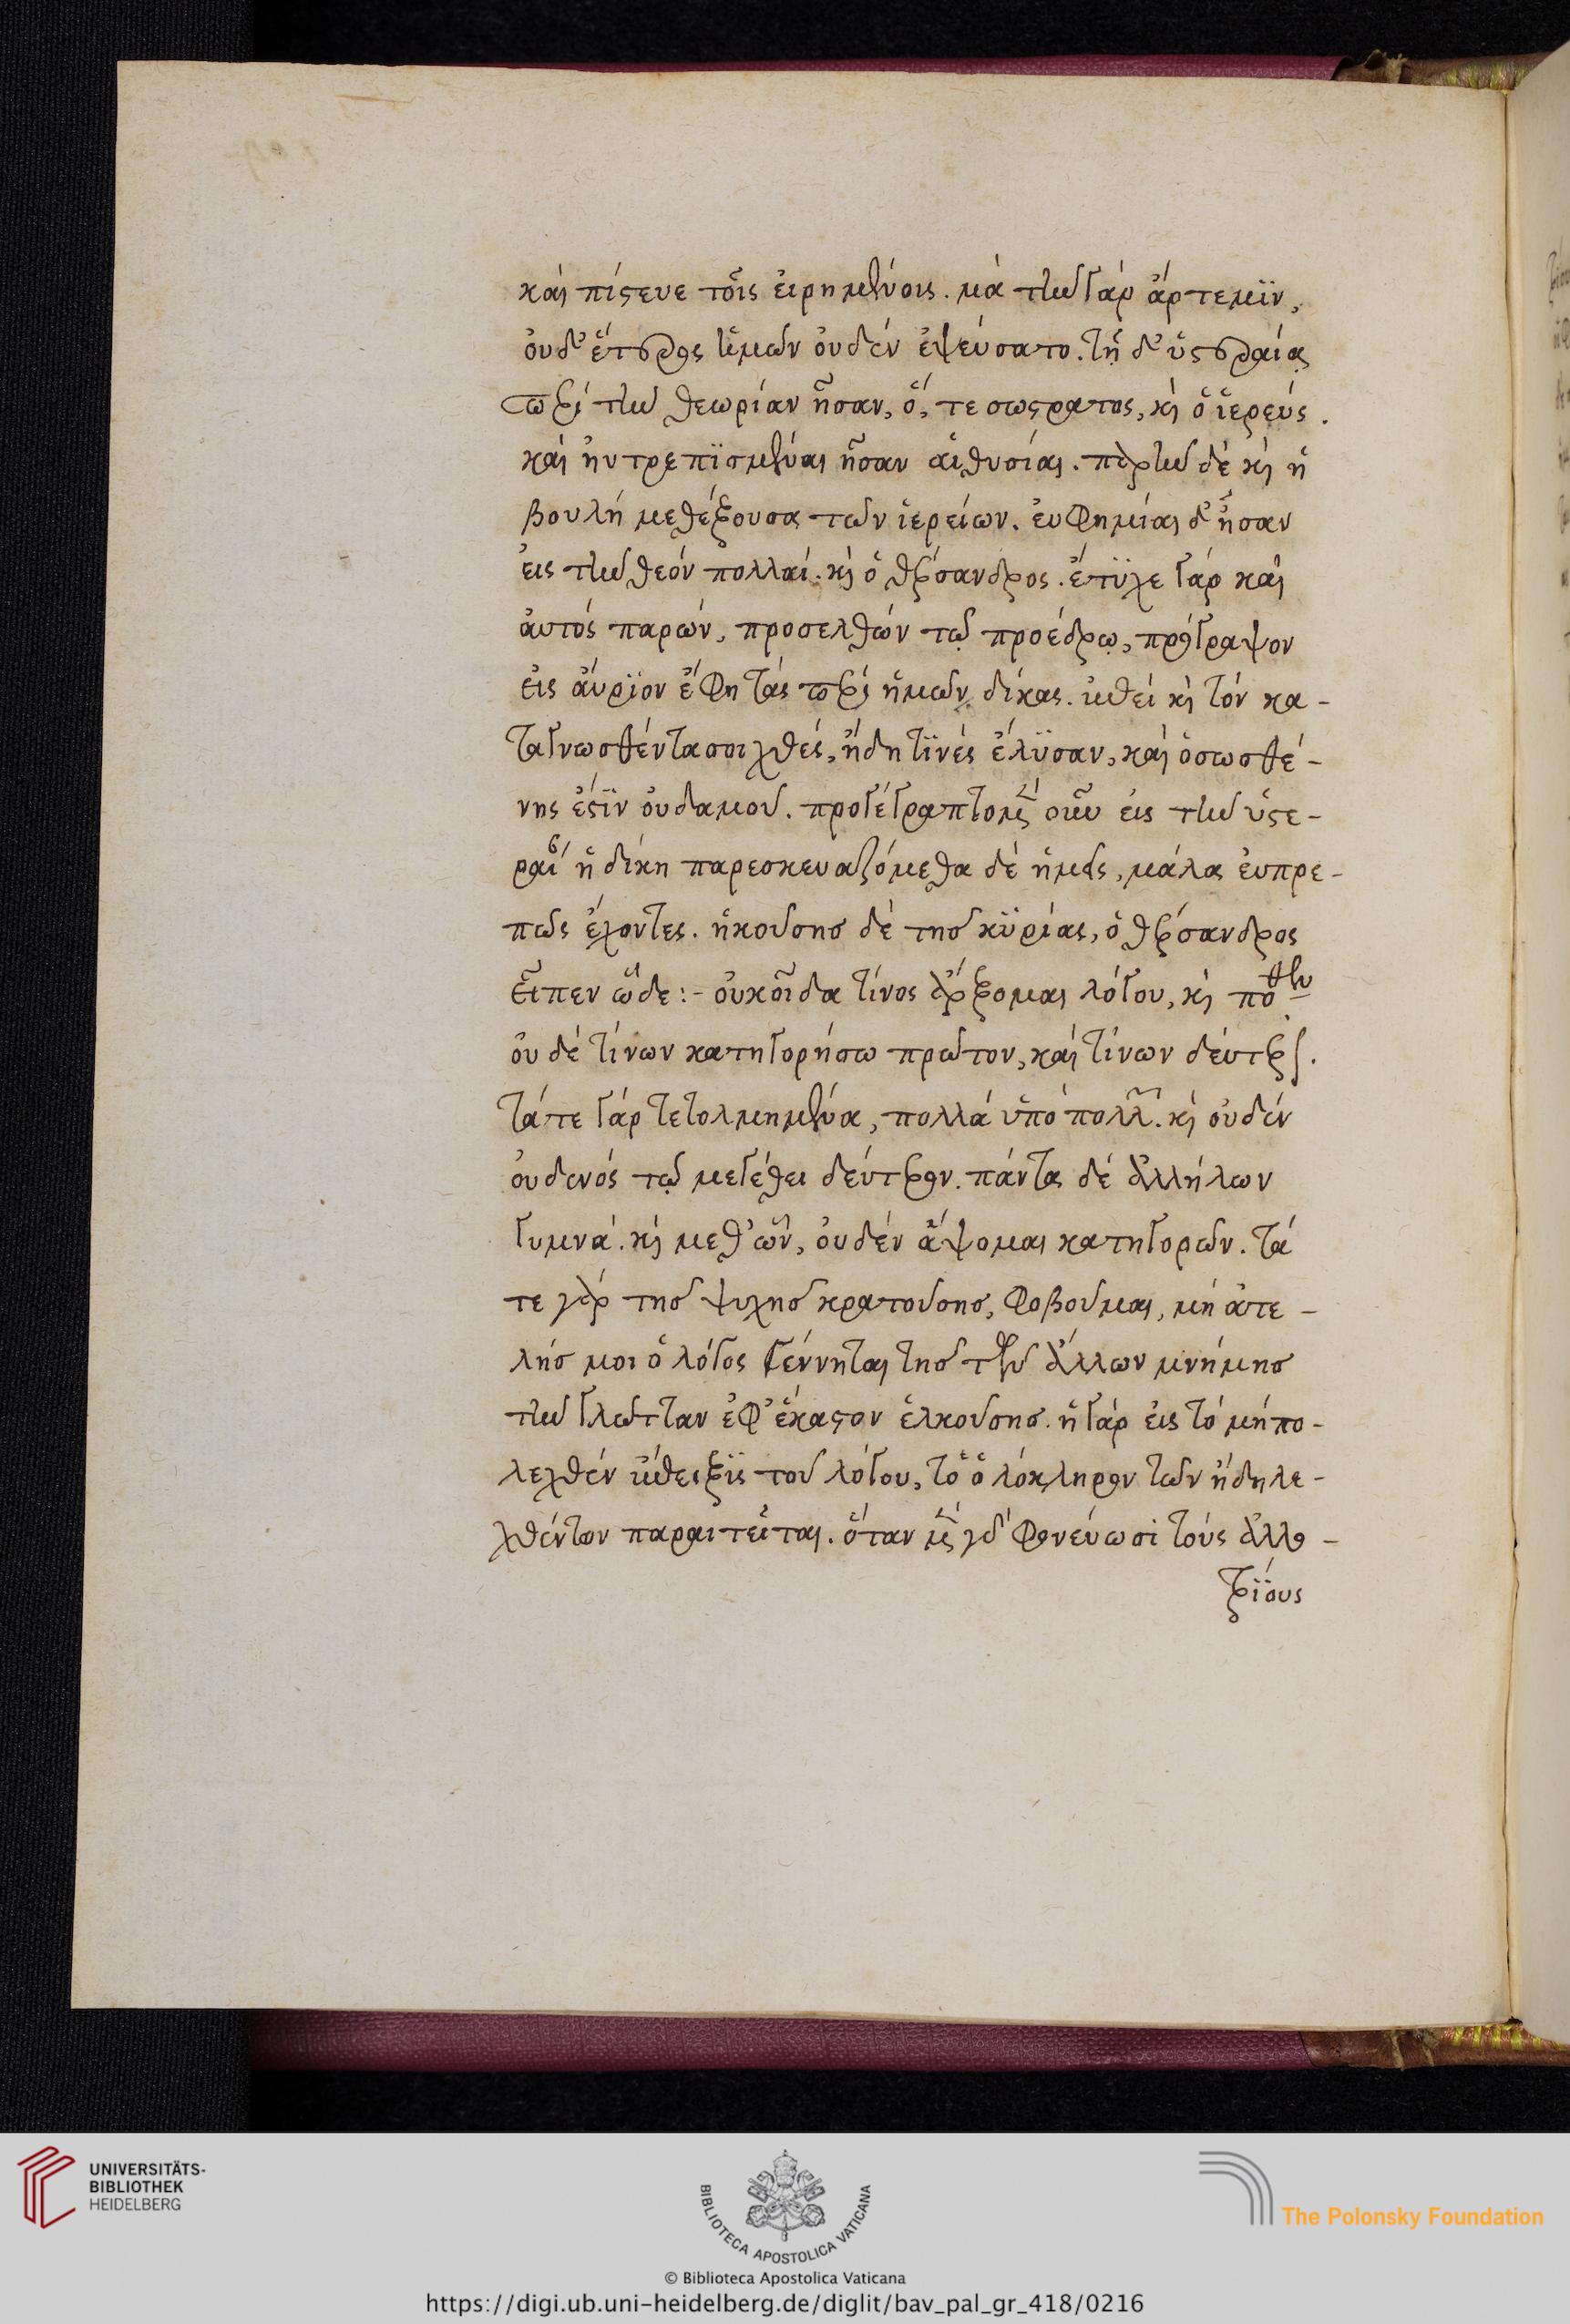 καὶ πίστευε τοῖς εἰρημένοις. μὰ τὴν γὰρ ἄρτεμϊν,
οὐδ' ἕτερος ἡμῶν οὐδὲν ἐψεύσατο. τῇ δ' ὑστεραίᾳ
περὶ τὴν θεωρίαν ἦσαν, ὅ, τε σώστρατος, κὶ ὁ ἱερεύς.
καὶ ηὐτρεπϊσμέναι ἦσαν αἱ θυσίαι. παρῆν δὲ κὶ ἡ
βουλὴ μεθέξουσα τῶν ἱερείων. εὐφημίαι δ' ἦσαν
εἰς τὴν θεὸν πολλαί. κὶ ὁ θέρσανδρος. ἔτϋχε γὰρ καὶ
αὐτὸς παρών, προσελθὼν τῷ προέδρῳ, πρόγραψον
εἰς αὔρϊον ἔφη τὰς περὶ ἡμῶν δίκας. ἐπεὶ κὶ τὸν κα-
ταγνωσθέντα σοι χθὲς, ἤδη τϊνὲς ἔλϋσαν, καὶ ὁ σωσθέ-
νης ἐστϊν οὐδαμοῦ. προγέγραπτο μὲν οὖν εἰς τὴν ὑστε-
ραίαν ἡ δίκη παρεσκευαζόμεθα δὲ ἡμεῖς, μάλα εὐπρε-
πῶς ἔχοντες. ἡκούσης δὲ τῆς κϋρίας, ὁ θέρσανδρος
εἶπεν ὧδε:- οὐκ οἶδα τίνος ἄρξομαι λόγου, κὶ πόθεν
οὐδὲ τίνων κατηγορήσω πρῶτον, καὶ τίνων δεύτερον.
τά τε γὰρ τετολμημένα, πολλὰ ὑπὸ πολλῶν. κὶ οὐδὲν
οὐδενὸς τῷ μεγέθει δεύτερον. πάντα δὲ ἀλλήλων
γυμνά. κὶ μεθ' ὧν, οὐδὲν ἅψομαι κατηγορῶν. τά
τε γὰρ τῆς ψυχῆς κρατούσης, φοβοῦμαι, μὴ ἀτε-
λής μοι ὁ λόγος γέννηται τῆς τῶν ἄλλων μνήμης
τὴν γλῶτταν ἐφ' ἕκαστον ἑλκούσης. ἡ γὰρ εἰς τὸ μήπο-
λεχθὲν ἔπειξϊς τοῦ λόγου, τὸ ὁλόκληρον τῶν ἤδη λε-
χθέντων παραιτεῖται. ὅταν μὲν γὰρ φονεύωσι τοὺς ἀλλο-
τρίους
UNIVERSITÄTS-
BIBLIOTHEK
HEIDELBERG
BIBLIOTECA APOSTOLICA VATICANA
The Polonsky Foundation
© Biblioteca Apostolica Vaticana
https://digi.ub.uni-heidelberg.de/diglit/bav_pal_gr_418/0216